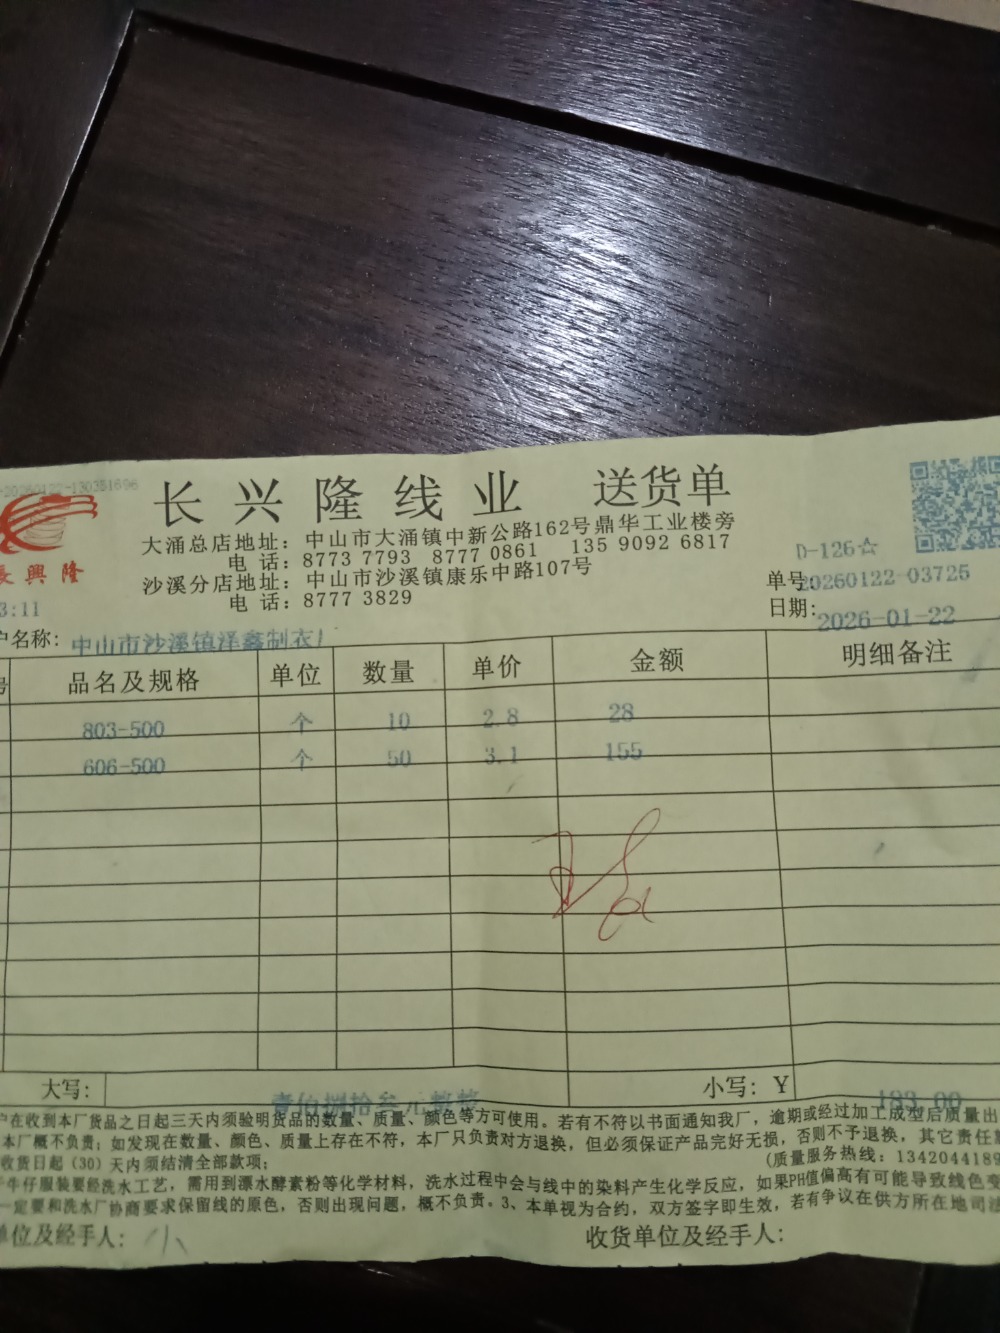 20260122-130351696
长兴隆线业 送货单
大涌总店地址：中山市大涌镇中新公路162号鼎华工业楼旁
电 话：8773 7793 8770 0861 135 9092 6817
沙溪分店地址：中山市沙溪镇康乐中路107号
电 话：8777 3829
長興隆
D-126☆
单号:20260122-03725
3:11
日期:2026-01-22
户名称: 中山市沙溪镇泽鑫制衣厂
号 品名及规格 单位 数量 单价 金额 明细备注
803-500 个 10 2.8 28
606-500 个 50 3.1 155
大写: 壹佰捌拾叁元整 小写: Y 183.00
户在收到本厂货品之日起三天内须验明货品的数量、质量、颜色等方可使用。若有不符以书面通知我厂，逾期或经过加工成型后质量出
本厂概不负责；如发现在数量、颜色、质量上存在不符，本厂只负责对方退换，但必须保证产品完好无损，否则不予退换，其它责任
收货日起（30）天内须结清全部款项； (质量服务热线：1342044189
牛仔服装要经洗水工艺，需用到漂水酵素粉等化学材料，洗水过程中会与线中的染料产生化学反应，如果PH值偏高有可能导致线色变
一定要和洗水厂协商要求保留线的原色，否则出现问题，概不负责。3、本单视为合约，双方签字即生效，若有争议在供方所在地司法
单位及经手人: 小 收货单位及经手人: